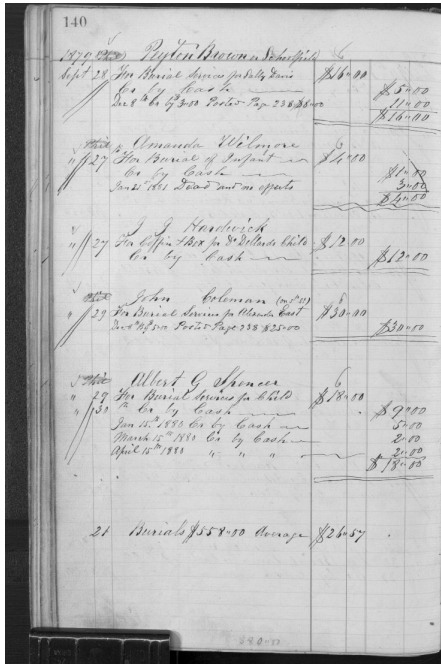 140
1879 Peyton Brown Sheffield
Sept 28 For Burial Services for Dolly Davis $16.00
Cr by Cash $5.00
Dec 8th Cr by 3.00 Posted Page 236 $8.00 11.00
$16.00
Amanda Wilmore
" 27 For Burial of Infant $4.00
Cr by Cash $1.00
Jan 21st 1881 Dead and no effects 3.00
$4.00
J J Hardwick
" 27 For Coffin & Box for Dr Dollards Child $12.00
Cr by Cash $12.00
John Coleman
" 29 For Burial Services for East $30.00
Posted Page 238 $25.00 $30.00
Albert G Spencer
" 29 For Burial Services for Child $18.00
" 30th Cr by Cash $9.00
Jan 15th 1880 Cr by Cash 5.00
March 15th 1880 Cr by Cash 2.00
April 15th 1880 " " " 2.00
$18.00
21 Burials $558.00 Average $26.57